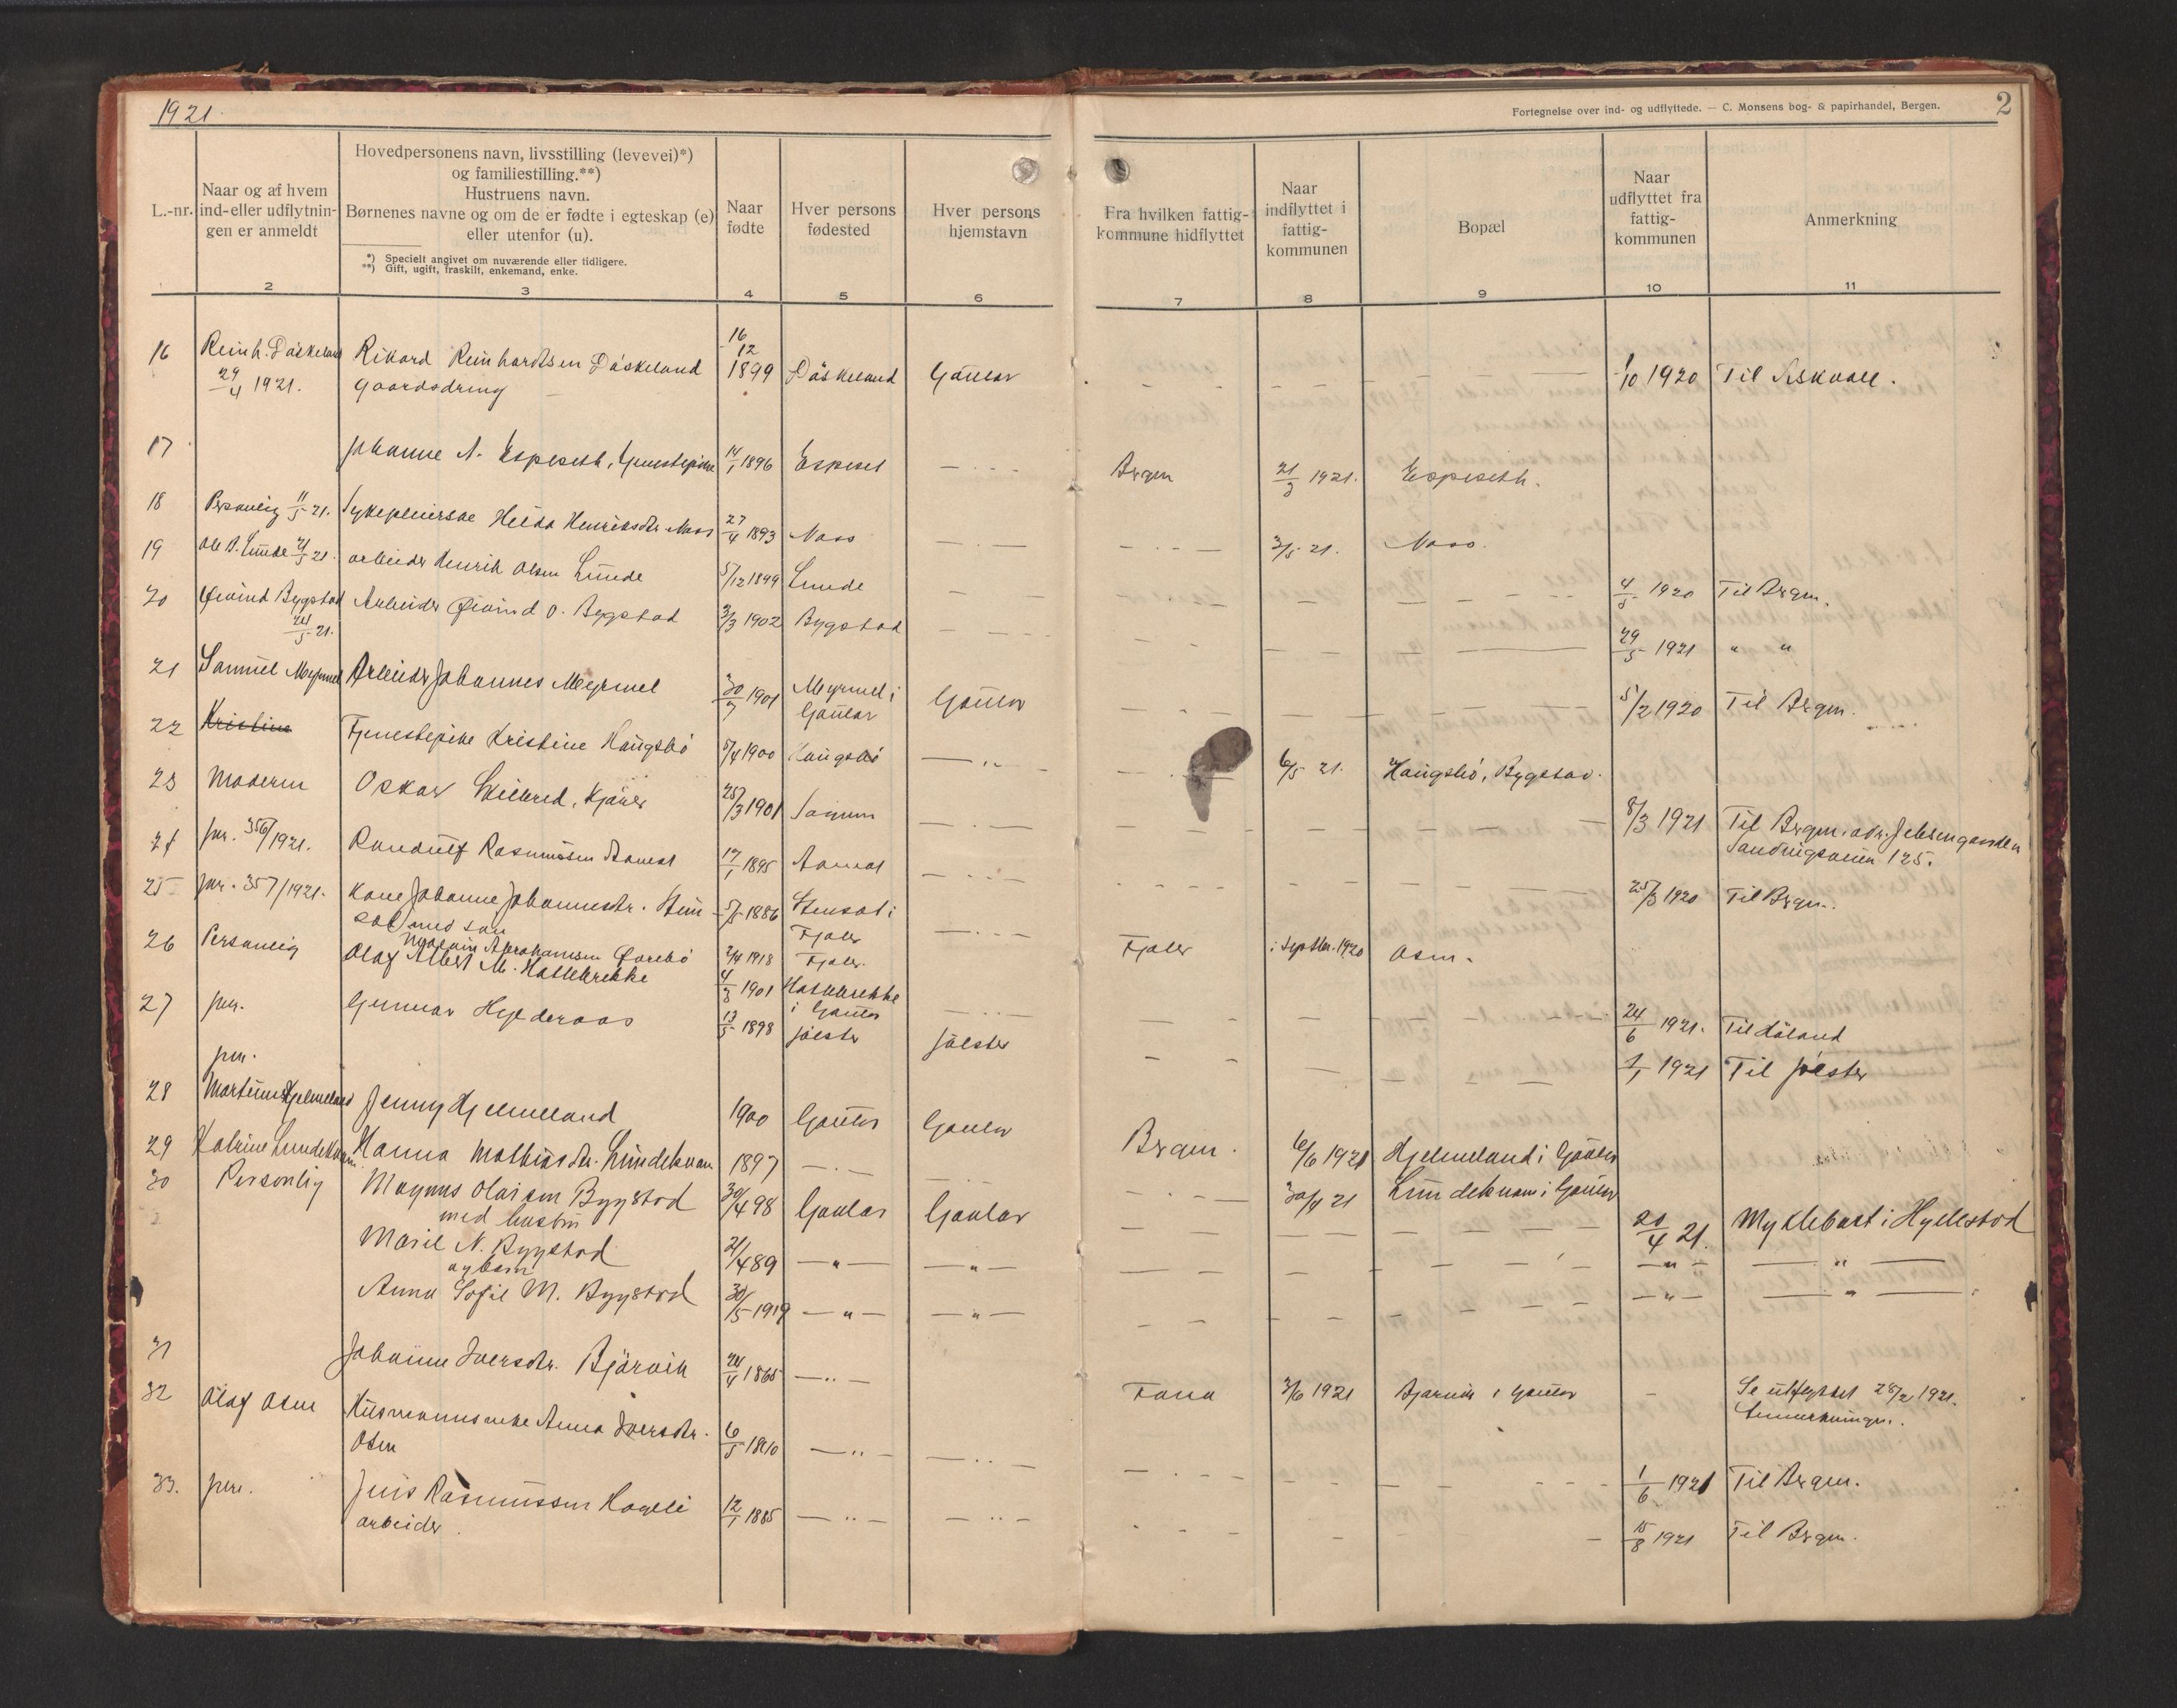 1921.
Fortegnelse over ind- og udflyttede. — C. Monsens bog- & papirhandel, Bergen.
2
L.-nr.
Naar og af hvem
ind-eller udflytnin-
gen er anmeldt
Hovedpersonens navn, livsstilling (levevei)*)
og familiestilling.**)
Hustruens navn.
Børnenes navne og om de er fødte i egteskap (e)
eller utenfor (u).
*) Specielt angivet om nuværende eller tidligere.
**) Gift, ugift, fraskilt, enkemand, enke.
Naar
fødte
Hver persons
fødested
Hver persons
hjemstavn
Fra hvilken fattig-
kommune hidflyttet
Naar
indflyttet i
fattig-
kommunen
Bopæl
Naar
udflyttet fra
fattig-
kommunen
Anmerkning
2 3 4 5 6 7 8 9 10 11
16 Reinh. Dåskeland Rikard Reinhardtsen Dåskeland 16/12 1899 Dåskeland Gaular 1/10 1920 Til Askvoll.
29/4 1921. gaardsdreng
17 Johanne A. Espeseth, tjenestepike 14/1 1896 Espeset — . . — Bergen 21/3 1921. Espeseth.
18 Personlig 11/5 21. Sykepleierske Helda Henriksdtr. Noss 27/4 1893 Noss — . — — . . — 3/5 21. Noss.
19 Ole B. Lunde 21/5 21. arbeider Henrik Olsen Lunde 5/12 1899 Lunde — — 4/5 1920 Til Bergen.
20 Øivind Bygstad Arbeider Øivind O. Bygstad 3/3 1902 Bygstad — — 29/5 1921 " "
24/5 21.
21 Samuel Meyrmel Arbeider Johannes Meyrmel 30/7 1901 Meyrmel i Gaular 5/2 1920 Til Bergen.
Gaular
22 Kristine Tjenestepike Kristine Haugsbö 5/4 1900 Haugsbö — " — 6/5 21. Haugsbö, Bygstad.
23 Moderen Oskar Skilbred, Kjörer 25/3 1901 — . — 8/3 1921 Til Bergen. adr. Jebsengaarden
Sandviksveien 125.
24 jnr. 356/1921. Randulf Rasmussen Aamot 17/1 1895 Aamot — . . — 25/3 1920 Til Bergen.
25 jnr. 357/1921. Kone Johanne Johannesdtr. Sten- 5/5 1886 Stensæt i — . . — Fjaler i Septbr. 1920 Osen.
sæt med søn Fjaler
Abrahamsen Øvrebö 2/4 1918 Fjaler.
26 Personlig Olaf Albert M. Hattebrekke 4/3 1901 Hattebrekke — . . — 24/6 1921. Til Höland
i Gaular
27 jnr. Gunnar Hjelderaas 13/5 1898 Jölster Jölster 1/1 1921 Til Jölster
jnr.
28 Martinus Hjelmeland Jenny Hjelmeland 1900 Gaular Gaular Bergen. 6/6 1921 Hjelmeland i Gaular
29 Katrine Lundekvam Hanna Mathiasdtr. Lundekvam 1897 — . — — . . — 30/4 21 Lundekvam i Gaular
30 Personlig Magnus Olaisen Bygstad 30/4 98 Gaular Gaular 20/4 21. Myklebust i Hyllestad
med hustru
Marie N. Bygstad 21/4 89 — " — — " — — " — — " —
og barn
Anna Sofie M. Bygstad 30/5 1919 — " — — " — — " — — " —
31 Johanne Iversdtr. Bjärvik 24/4 1865 — . . — Fana 3/6 1921 Bjarvik i Gaular — Se utflyttet 28/2 1921.
Anmerkningen.
32 Olaf Osen Husmannsenke Anna Iversdtr. 6/5 1810 — " — — . . — 1/6 1921 Til Bergen.
Osen
33. jnr. Jens Rasmussen Hageli 12/1 1885 — . . — — . . — 15/8 1921 Til Bergen.
arbeider.